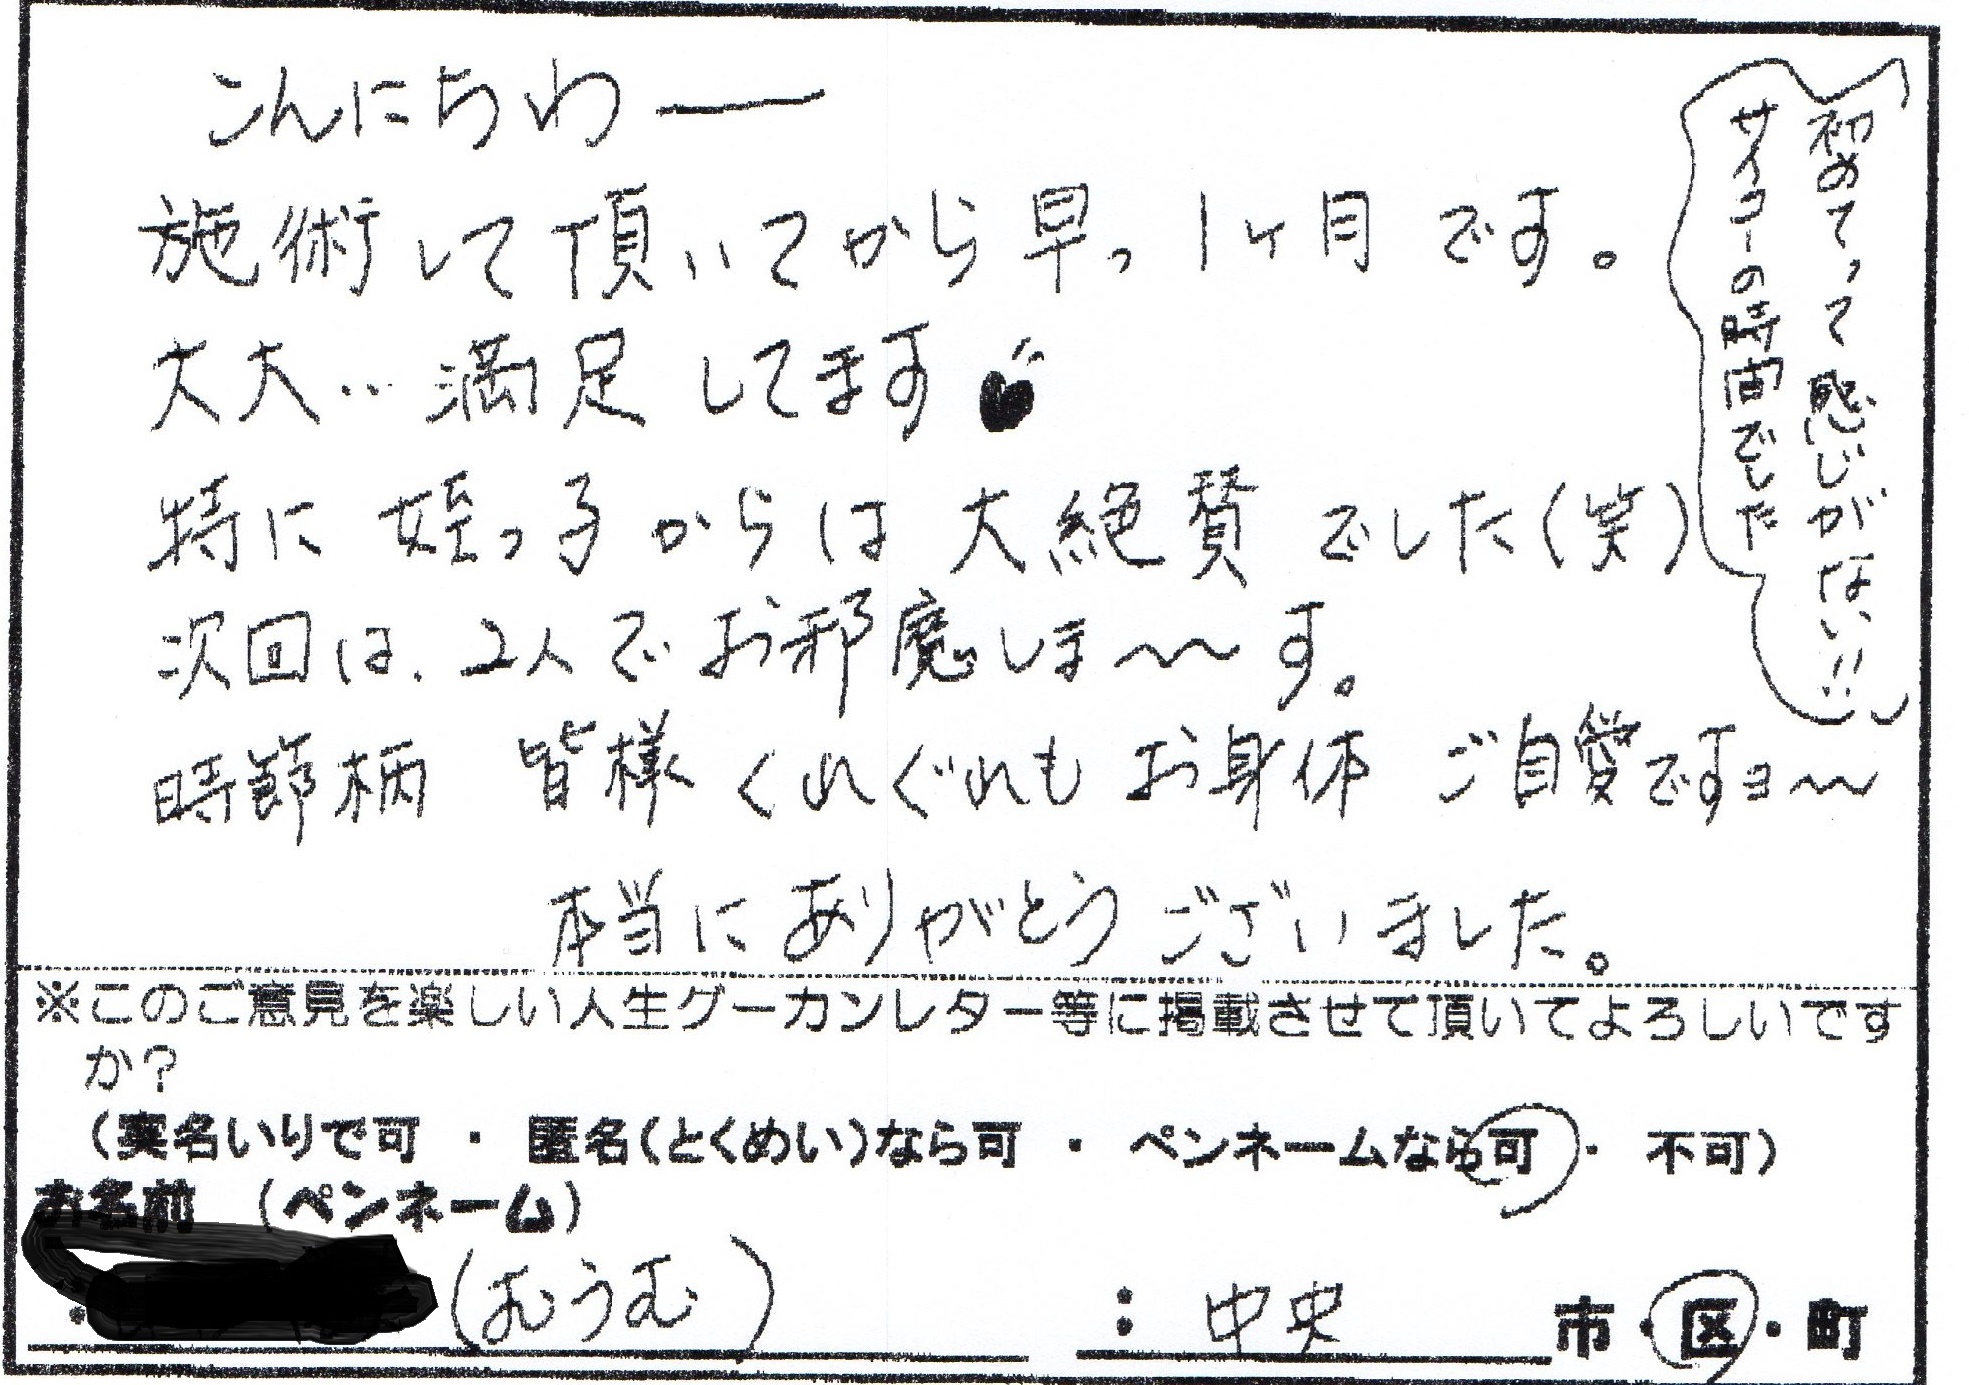 こんにちわー
施術して頂いてから早っ1ヶ月です。
大大‥満足してます♥
特に姪っ子からは大絶賛でした(笑)
初めてって感じがない!!
サイコーの時間でした
次回は、2人でお邪魔しま〜〜す。
時節柄 皆様くれぐれもお身体ご自愛ですョ〜
本当にありがとうございました。
※このご意見を楽しい人生グーカンレター等に掲載させて頂いてよろしいです
か?
(実名いりで可 ・ 匿名(とくめい)なら可 ・ ペンネームなら可 ・ 不可)
お名前 (ペンネーム)
(むうむ) : 中央 市・区・町